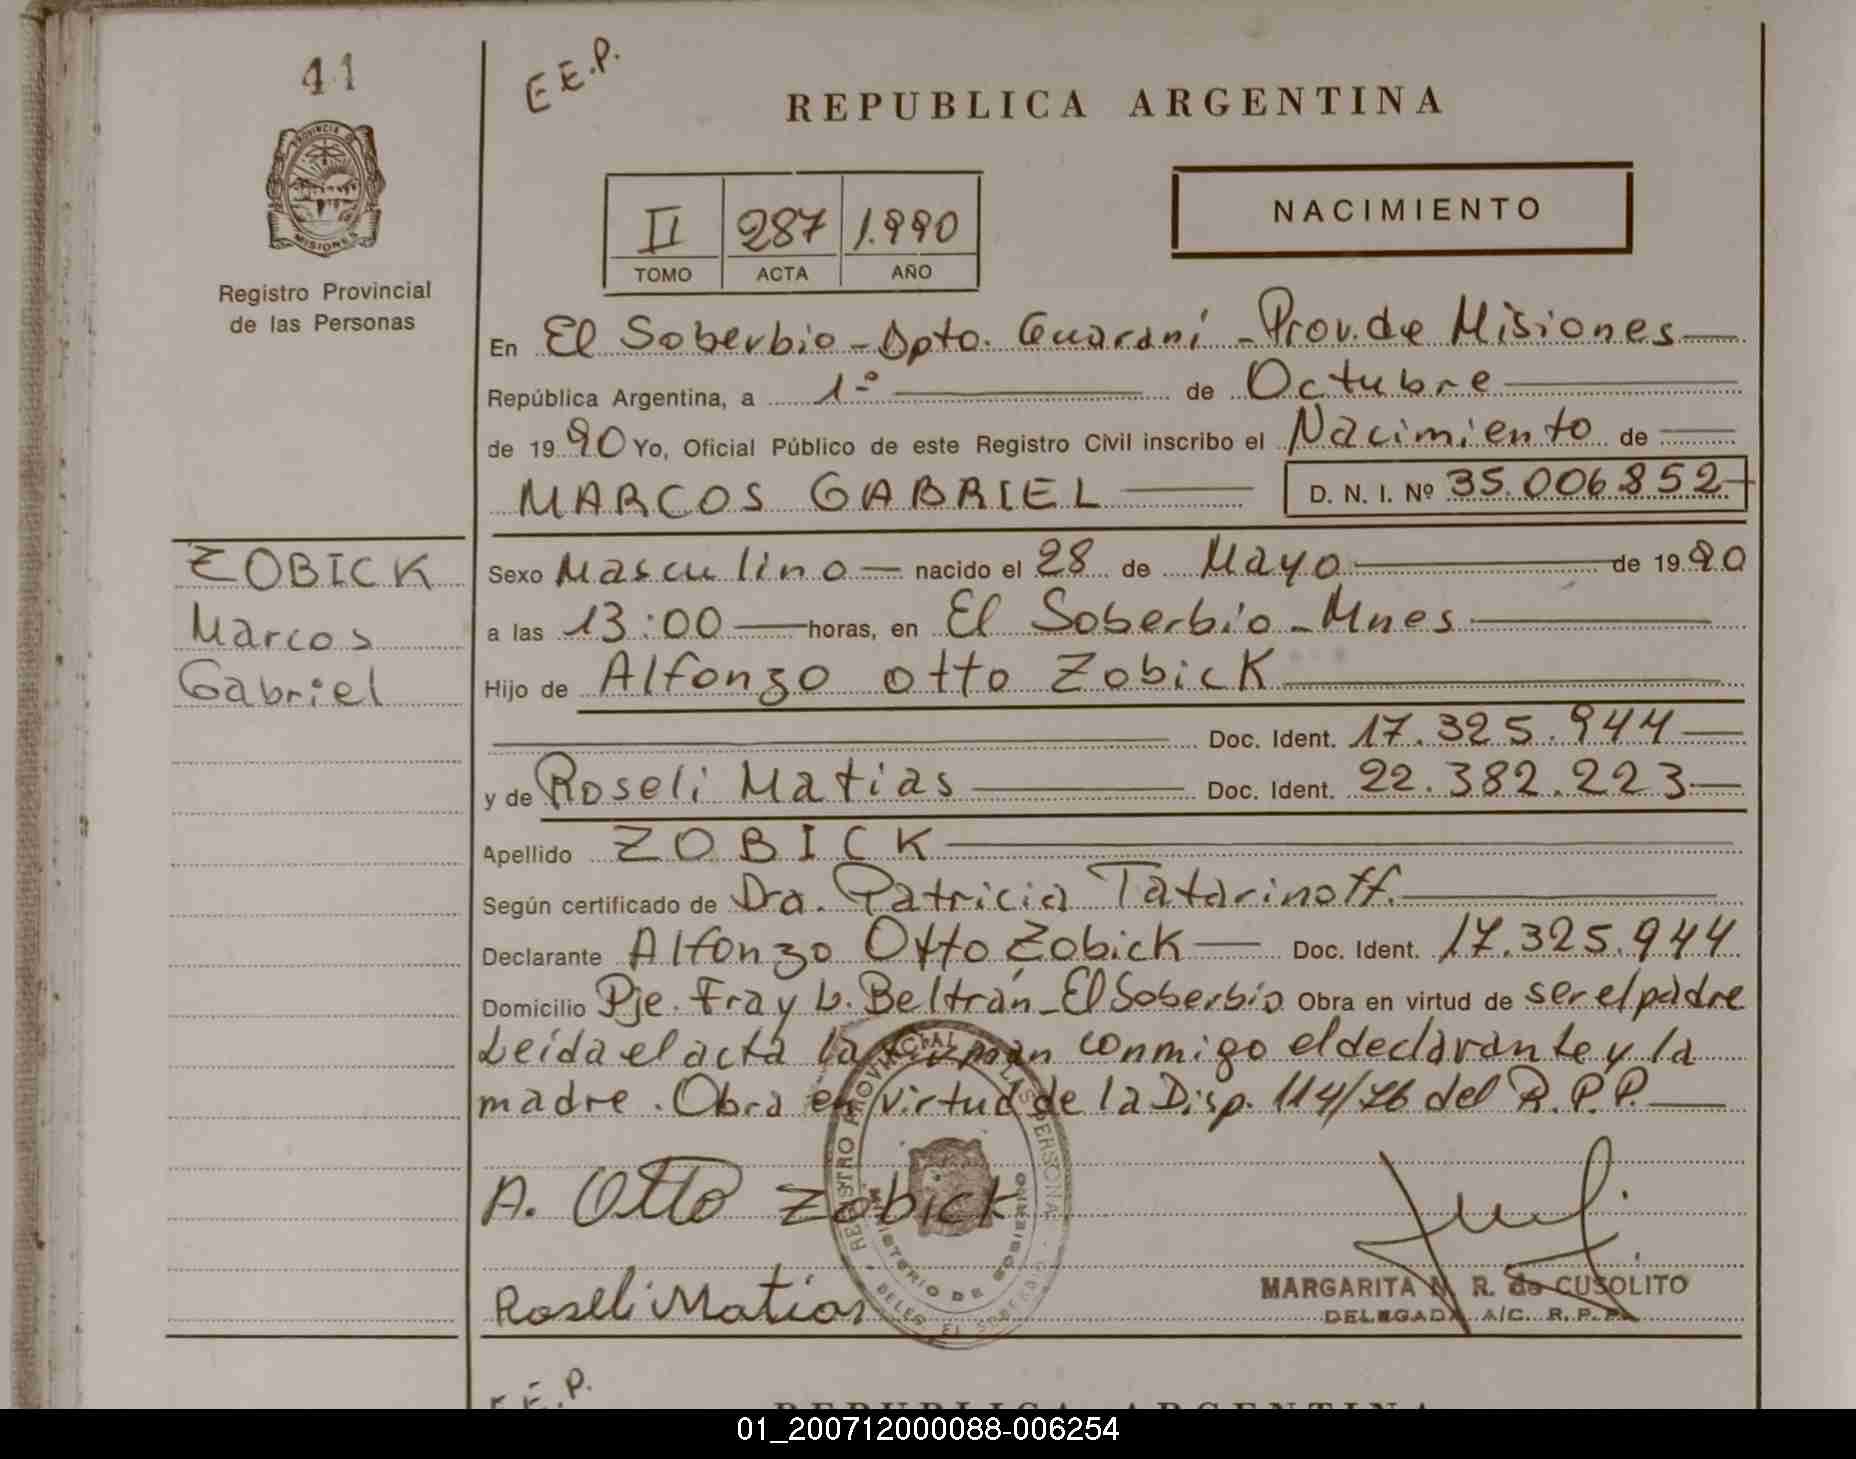 41
E.E.P.
REPUBLICA ARGENTINA
PROVINCIA DE
MISIONES
Registro Provincial
de las Personas
II 287 1.990
TOMO ACTA AÑO
NACIMIENTO
En El Soberbio - Dpto. Guaraní - Prov. de Misiones
República Argentina, a 1º de Octubre
de 19 90 Yo, Oficial Público de este Registro Civil inscribo el Nacimiento de
MARCOS GABRIEL D. N. I. Nº 35.006852
ZOBICK
Marcos
Gabriel
Sexo Masculino nacido el 28 de Mayo de 19 90
a las 13:00 horas, en El Soberbio - Mnes
Hijo de Alfonzo Otto Zobick
Doc. Ident. 17.325.944
y de Roseli Matias Doc. Ident. 22.382.223
Apellido ZOBICK
Según certificado de Dra. Patricia Tatarinoff.
Declarante Alfonzo Otto Zobick Doc. Ident. 17.325.944
Domicilio Pje. Fray L. Beltrán - El Soberbio Obra en virtud de ser el padre
Leída el acta la firman conmigo el declarante y la
madre. Obra en virtud de la Disp. 114/76 del R.P.P.
A. Otto Zobick
Roseli Matias
REGISTRO PROVINCIAL DE LAS PERSONAS
MINISTERIO DE GOBIERNO
DELEG. EL SOBERBIO
MARGARITA N. R. de CUSOLITO
DELEGADA A/C. R.P.P.
E.E.P.
REPUBLICA ARGENTINA
01_200712000088-006254